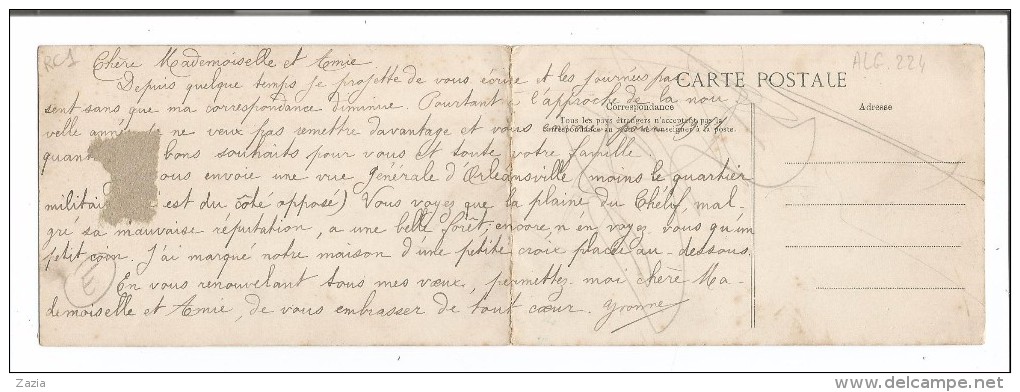 RC1
ALG. 224
Chère Mademoiselle et Amie
Depuis quelque temps je projette de vous écrire et les journées pas
sent sans que ma correspondance diminue. Pourtant à l'approche de la nou
velle année ne veux pas remettre davantage et vous
bons souhaits pour vous et toute votre famille.
ous envoie une vue générale d'Orléansville (moins le quartier
militai est du côté opposé) Vous voyez que la plaine du Chélif, mal-
gré sa mauvaise réputation, a une belle forêt, encore n'en voyez vous qu'un
petit coin. J'ai marqué notre maison d'une petite croix placée au-dessous.
En vous renouvelant tous mes vœux, permettez-moi chère Ma-
demoiselle et Amie, de vous embrasser de tout cœur. Yvonne
E
CARTE POSTALE
Correspondance
Tous les pays étrangers n'acceptent pas la
Correspondance au recto se renseigner à la poste.
Adresse
Zazia
delcampe.net